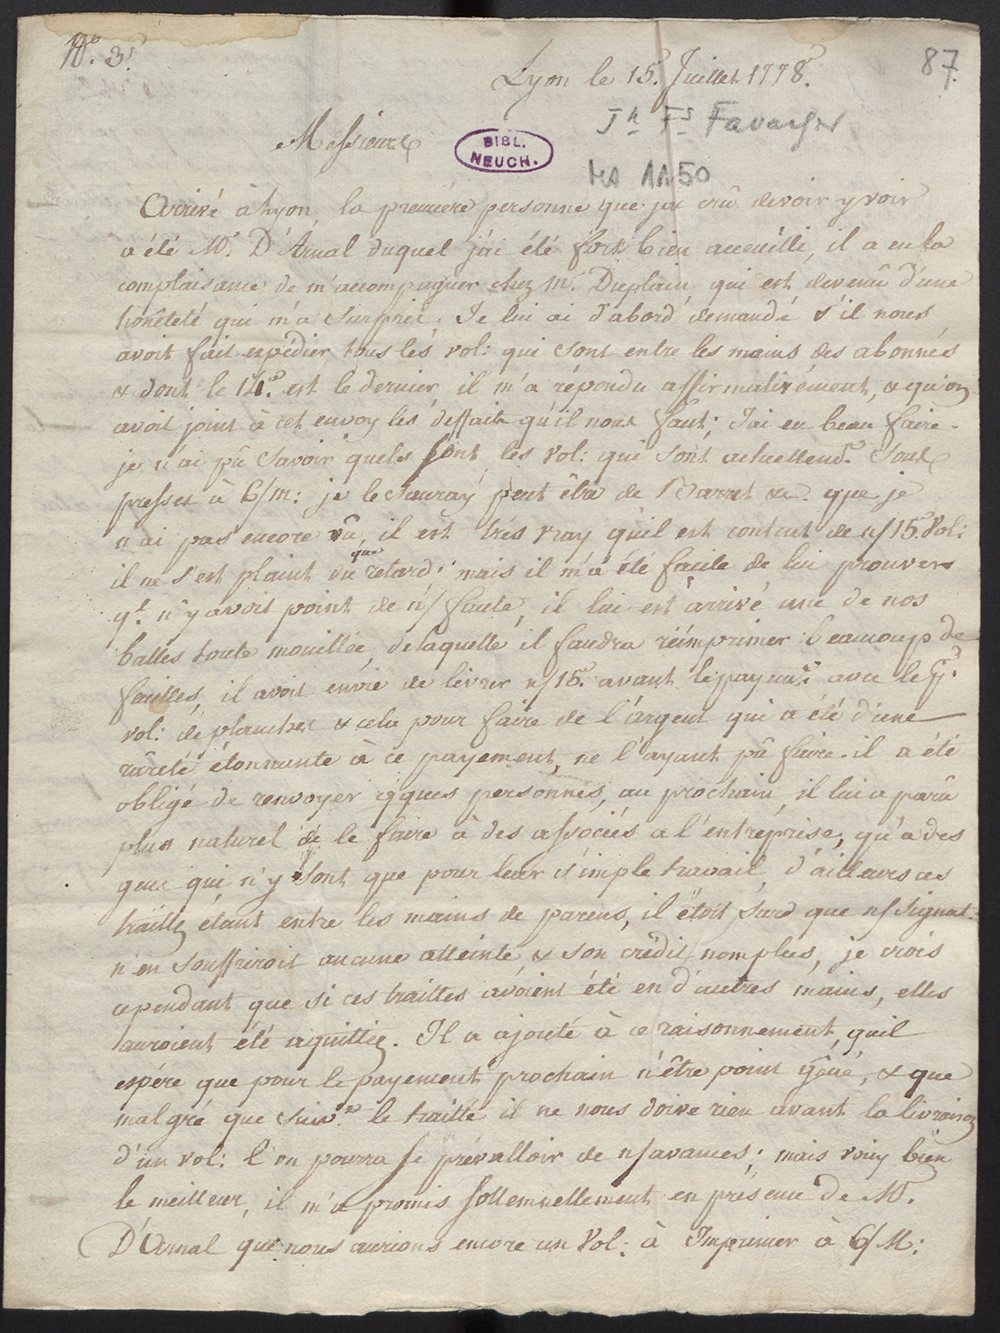 N.° 3.
87.
Lyon le 15.e Juillet 1778.
Jn Fs Favarger
Messieurs
BIBL.
NEUCH.
MS 1150
Arrivé à Lyon, la première personne que j'ai crû devoir y voir
a été Mr. D'Arnal duquel j'ai été fort bien accueilli, il a eu la
complaisance de m'accompagner chez M. Duplain qui est devenû d'une
honêteté qui m'a surpris. Je lui ai d'abord demandé s'il nous
avoit fait expédier tous les vol: qui sont entre les mains des abonnés
& dont le 14.e est le dernier, il m'a répondu affirmativement, & qu'on
avoit joint à cet envoy les deffaits qu'il nous faut; J'ai eu beau faire
je n'ai pû savoir quels sont les vol: qui sont actuellemt. sous
presses à 6/m: je le sauray peut être de Barret &c. que je
n'ai pas encore vû, il est très vray qu'il est content de n/15.e Vol:
il ne s'est plaint que du retard; mais il m'a été facile de lui prouver
qt. n'y avoit point de n/ faute, il lui est arrivé une de nos
balles toute mouillée, de laquelle il faudra réimprimer beaucoup de
feuilles, il avoit envie de livrer n/15.e avant le payemt. avec le
vol: de planches & cela pour faire de l'argent qui a été d'une
rareté étonnante à ce payement, ne l'ayant pû faire il a été
obligé de renvoyer qques personnes, au prochain, il lui a parû
plus naturel de le faire à des associés a l'entréprise, qu'a des
gens qui n'y sont que pour leur simple travail, d'ailleurs ces
traittes étant entre les mains de parens, il étoit sûrd que n/ signat.
n'en souffriroit aucune atteinte & son crédit nomplus, je crois
cependant que si ces traittes avoient été en d'autres mains, elles
auroient été aquittées. Il a ajouté à ce raisonnement, quil
espére que pour le payement prochain n'être point gêné, & que
malgré que suivt. le traitté il ne nous doive rien avant la livraison
d'un vol: l'on pourra se prévalloir de n/avances; mais voicy bien
le meilleur, il m'a promis sollemnellement en présence de M.
D'Arnal que nous aurions encore un Vol: à Imprimer à 6/M: